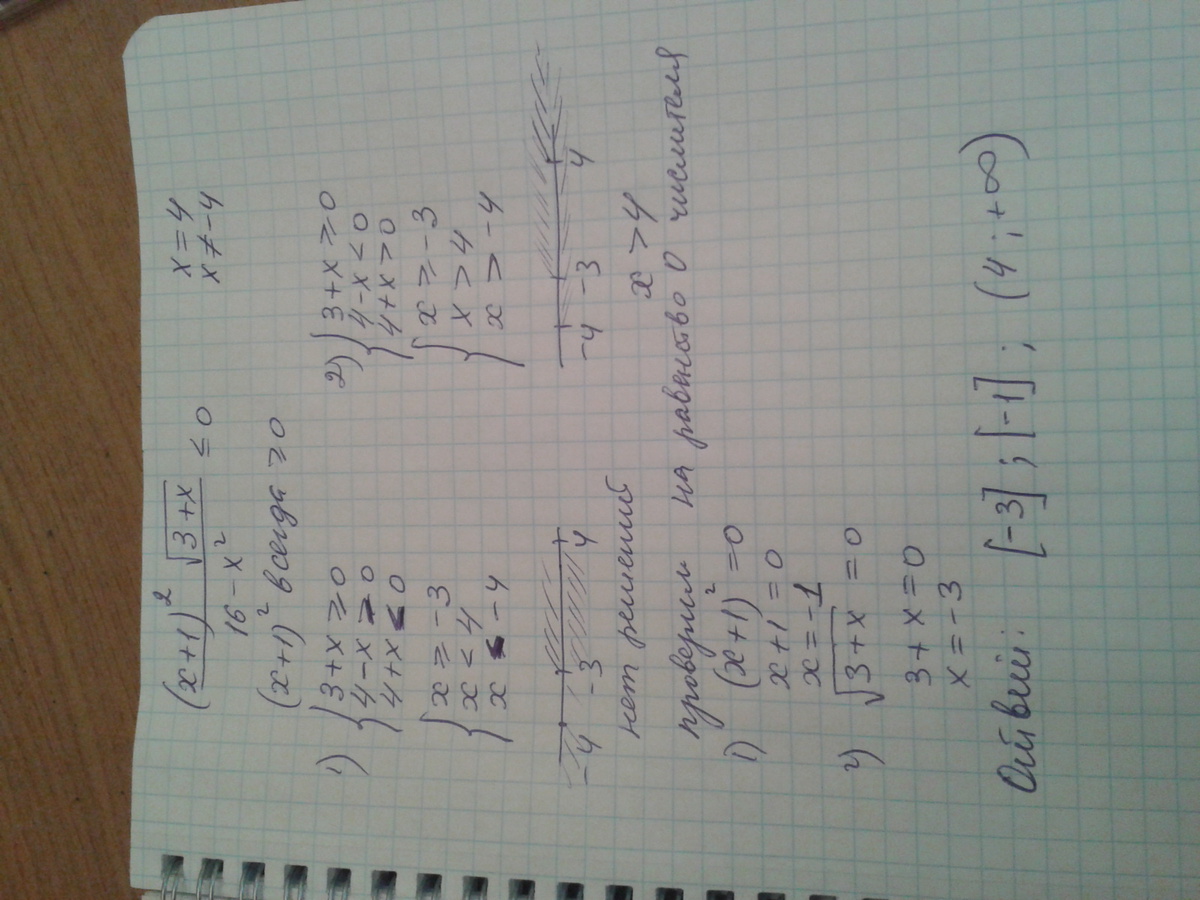 (x+1)² √(3+x) / (16 − x²) ≤ 0
x = 4
x ≠ −4
(x+1)² всегда ≥ 0
1) { 3+x ≥ 0
4−x ≥ 0
4+x ≤ 0
{ x ≥ −3
x < 4
x < −4
−4 −3 4
нет решений
2) { 3+x ≥ 0
4−x < 0
4+x > 0
{ x ≥ −3
x > 4
x > −4
−4 −3 4
x > 4
проверим на равенство 0 числителя
1) (x+1)² = 0
x+1 = 0
x = −1
2) √(3+x) = 0
3+x = 0
x = −3
Ответ: [−3] ; [−1] ; (4 ; +∞)